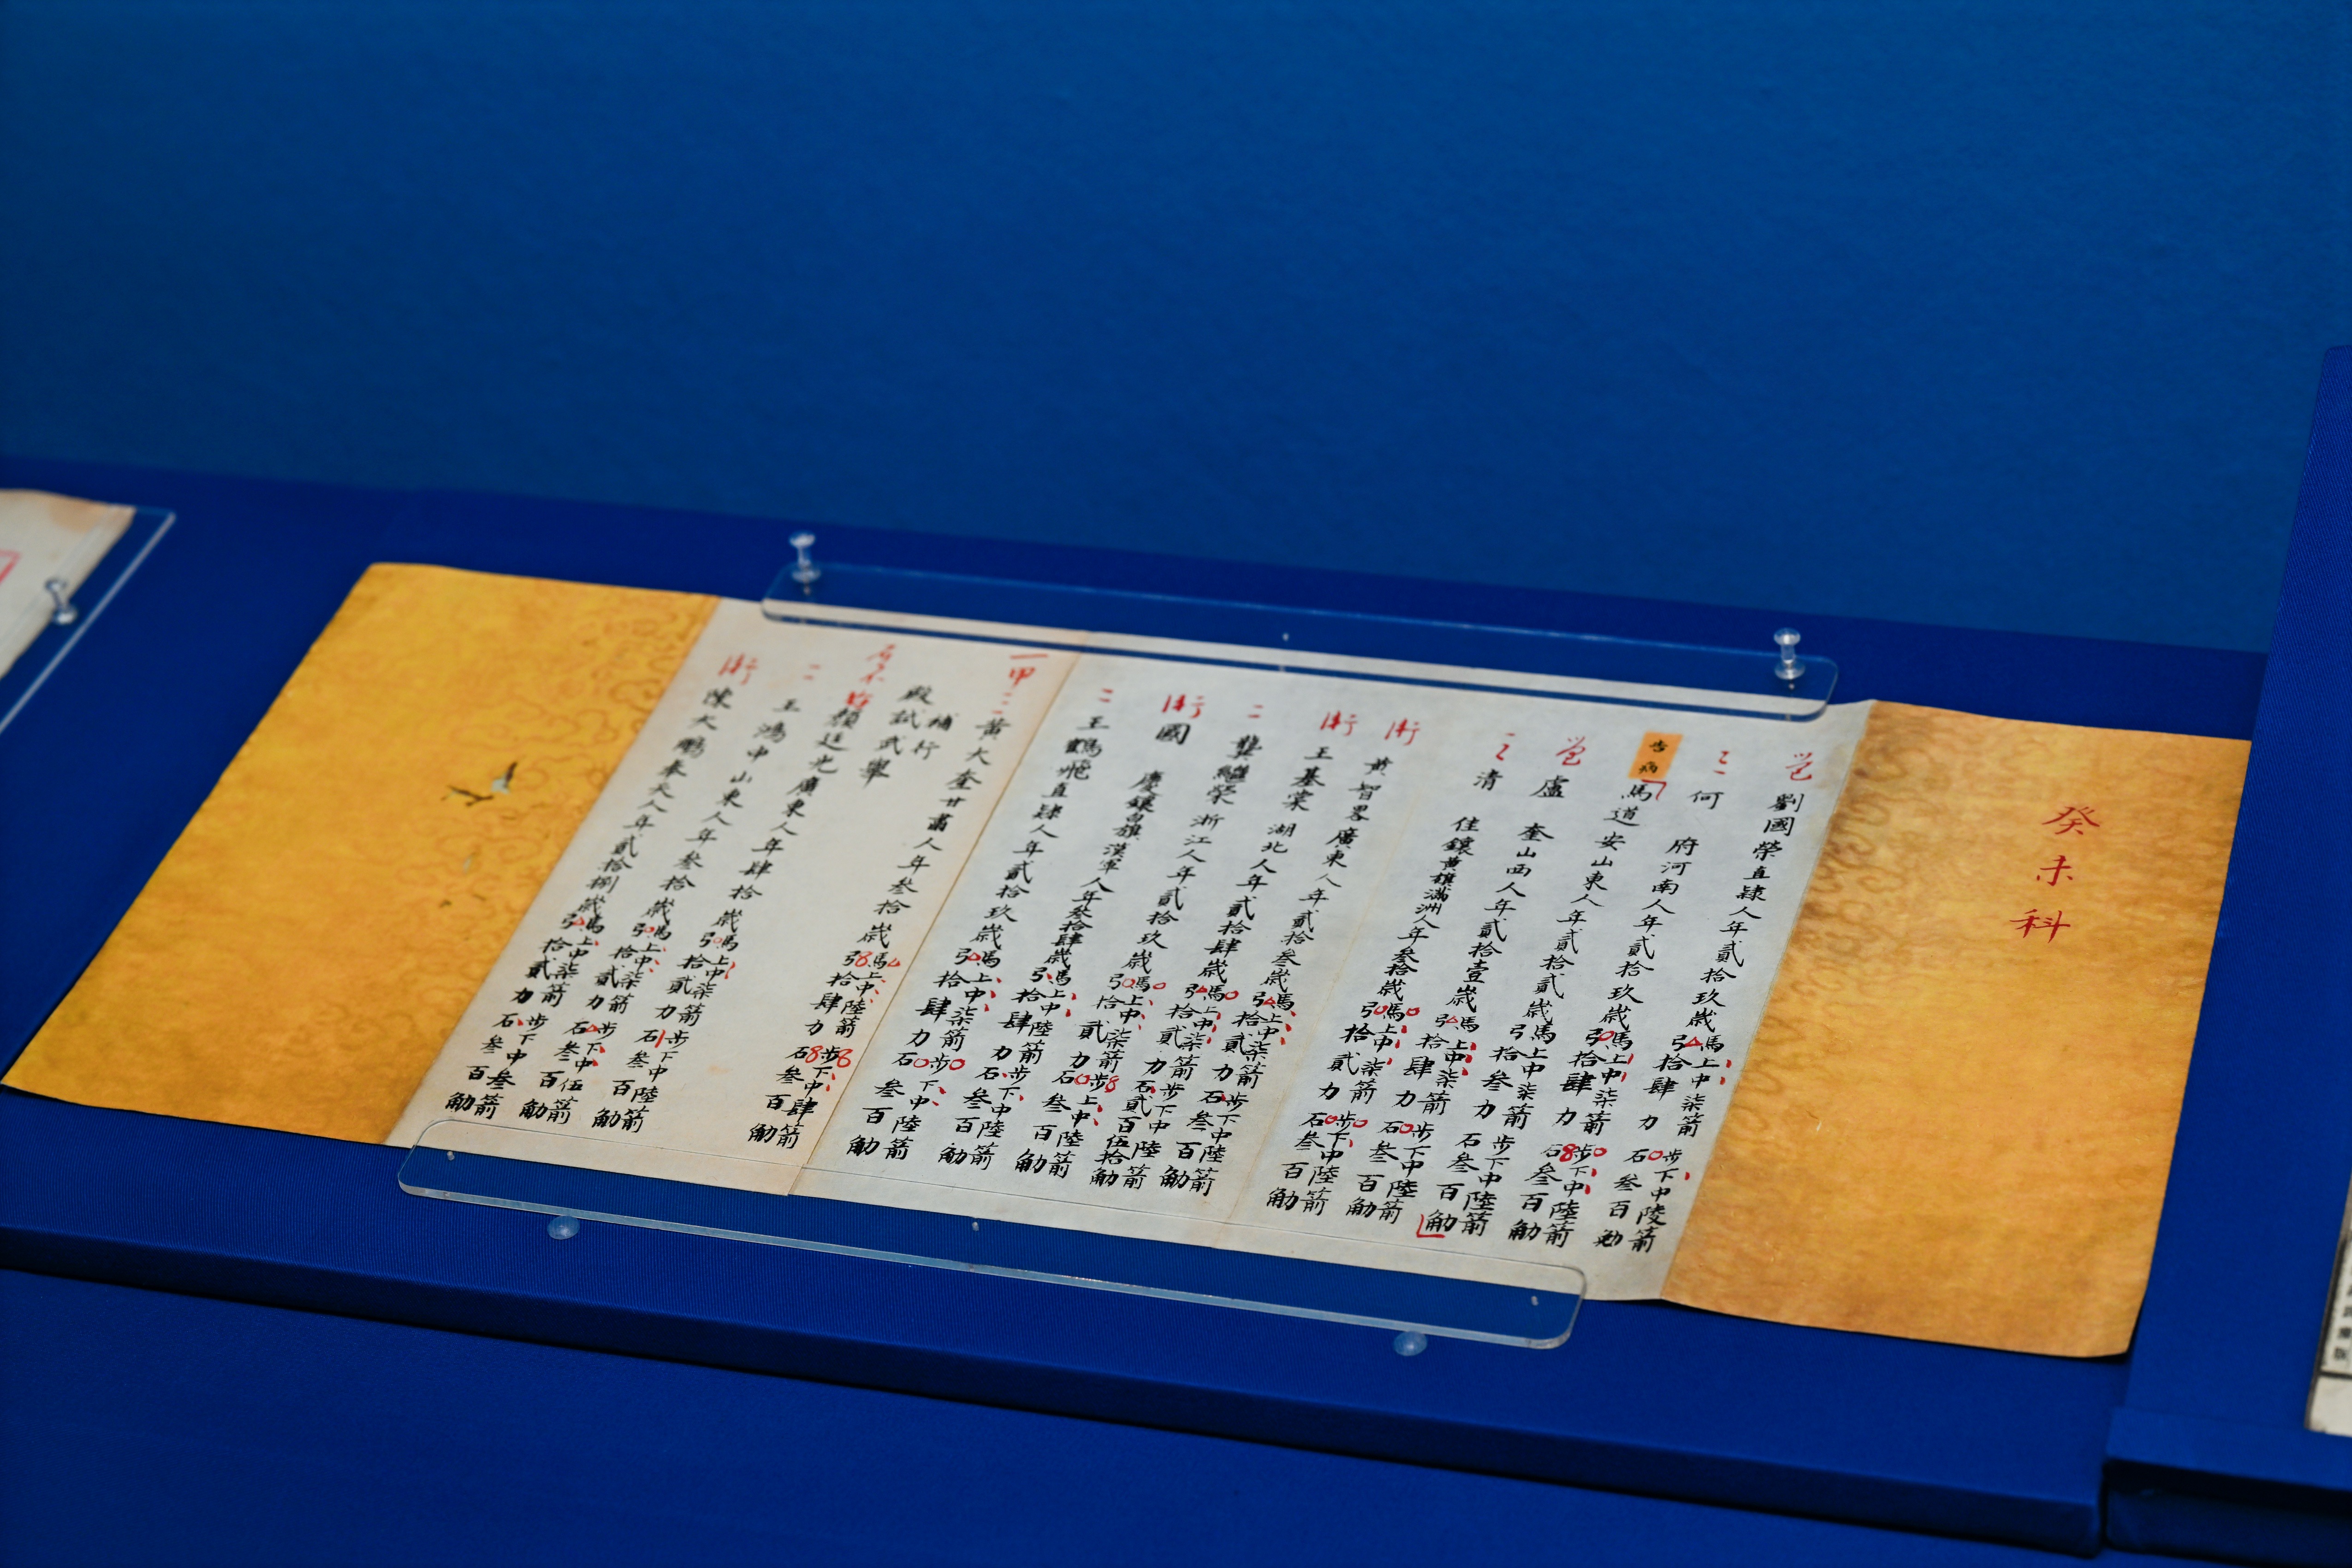 癸未科
劉國榮直隸人年貳拾玖歲馬上中柒箭步下中陵箭弓拾肆力石叁百觔
三
何 府河南人年貳拾玖歲馬上中柒箭步下中陸箭弓拾肆力石叁百觔
告病
馬道安山東人年貳拾貳歲馬上中柒箭步下中陸箭弓拾叁力石叁百觔
盧 奎山西人年貳拾壹歲馬上中柒箭步下中陸箭弓拾肆力石叁百觔
清 佳鑲黃旗滿洲人年叁拾歲馬上中柒箭步下中陸箭弓拾貳力石叁百觔
黃智畧廣東人年貳拾叁歲馬上中柒箭步下中陸箭弓拾貳力石叁百觔
王基棠湖北人年貳拾肆歲馬上中柒箭步下中陸箭弓拾貳力石貳百伍拾觔
二
龔繼榮浙江人年貳拾玖歲馬上中柒箭步上中陸箭弓拾貳力石叁百觔
國 慶鑲白旗漢軍人年叁拾肆歲馬上中陸箭步下中陸箭弓拾肆力石叁百觔
二
王鶴飛直隸人年貳拾玖歲馬上中柒箭步下中陸箭弓拾肆力石叁百觔
一甲三
黃大奎甘肅人年叁拾歲馬上中陸箭步下中肆箭弓拾肆力石叁百觔
補行
殿試武舉
顏廷光廣東人年肆拾歲馬上中柒箭步下中陸箭弓拾貳力石叁百觔
二
王鴻中山東人年叁拾歲馬上中柒箭步下中伍箭弓拾貳力石叁百觔
陳大鵬奉天人年貳拾捌歲馬上中柒箭步下中叁箭弓拾貳力石叁百觔